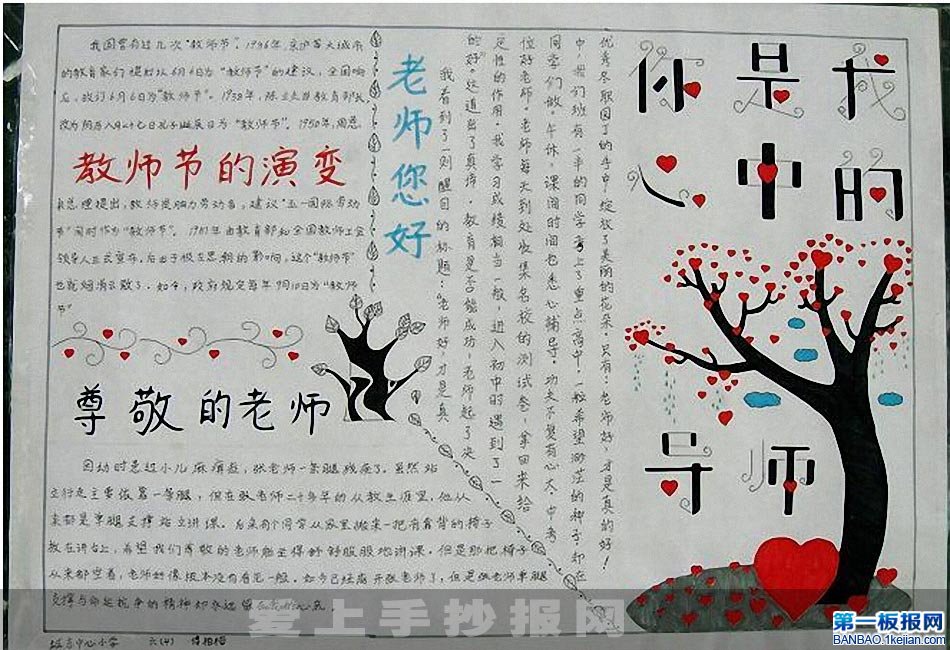 你是我
心中的
导师
老师您好
我国曾有过几次“教师节”。
的教育家们提出以6月6日为“教师节”的建议，全国响
应，改订6月6日为“教师节”。
改为阴历八月二十七日孔子诞辰日为“教师节”。
教师节的演变
来总理提出，教师是脑力劳动者，建议“五一国际劳动
节”同时作为“教师节”。
领导人正式宣布，
也就烟消云散了。如今，政府规定每年9月10日为“教师
节”
我看到了一则醒目的标题：“老师好，才是真
的好”这道出了真谛，教育是否能成功，老师起了决
定性的作用。我学习成绩相当一般，进入初中时遇到了一
位好老师。老师每天到处收集名校的测试卷，拿回来给
同学们做。午休、课间时间也悉心辅导。功夫不负有心人。中考
中我们班有一半的同学考上了重点高中！一般希望渺茫的种子，却在
优秀尽职园丁的手中，绽放了美丽的花朵。只有：老师好，才是真的好！
尊敬的老师
因幼时患过小儿麻痹症，张老师一条腿残疾了。虽然站
立行走主要依靠一条腿，但在张老师二十多年的从教生涯里，他从
来都是单腿支撑站立讲课。后来有个同学从家里搬来一把有靠背的椅子
放在讲台上，希望我们尊敬的老师能坐得舒舒服服地讲课。但是那把椅子
从来都空着，老师好像根本没有看见一般。如今已经离开张老师了，但是张老师单腿
支撑与命运抗争的精神却永远留
中心小学 六(4)
爱上手抄报网
第一板报网
BANBAO.1kejian.com